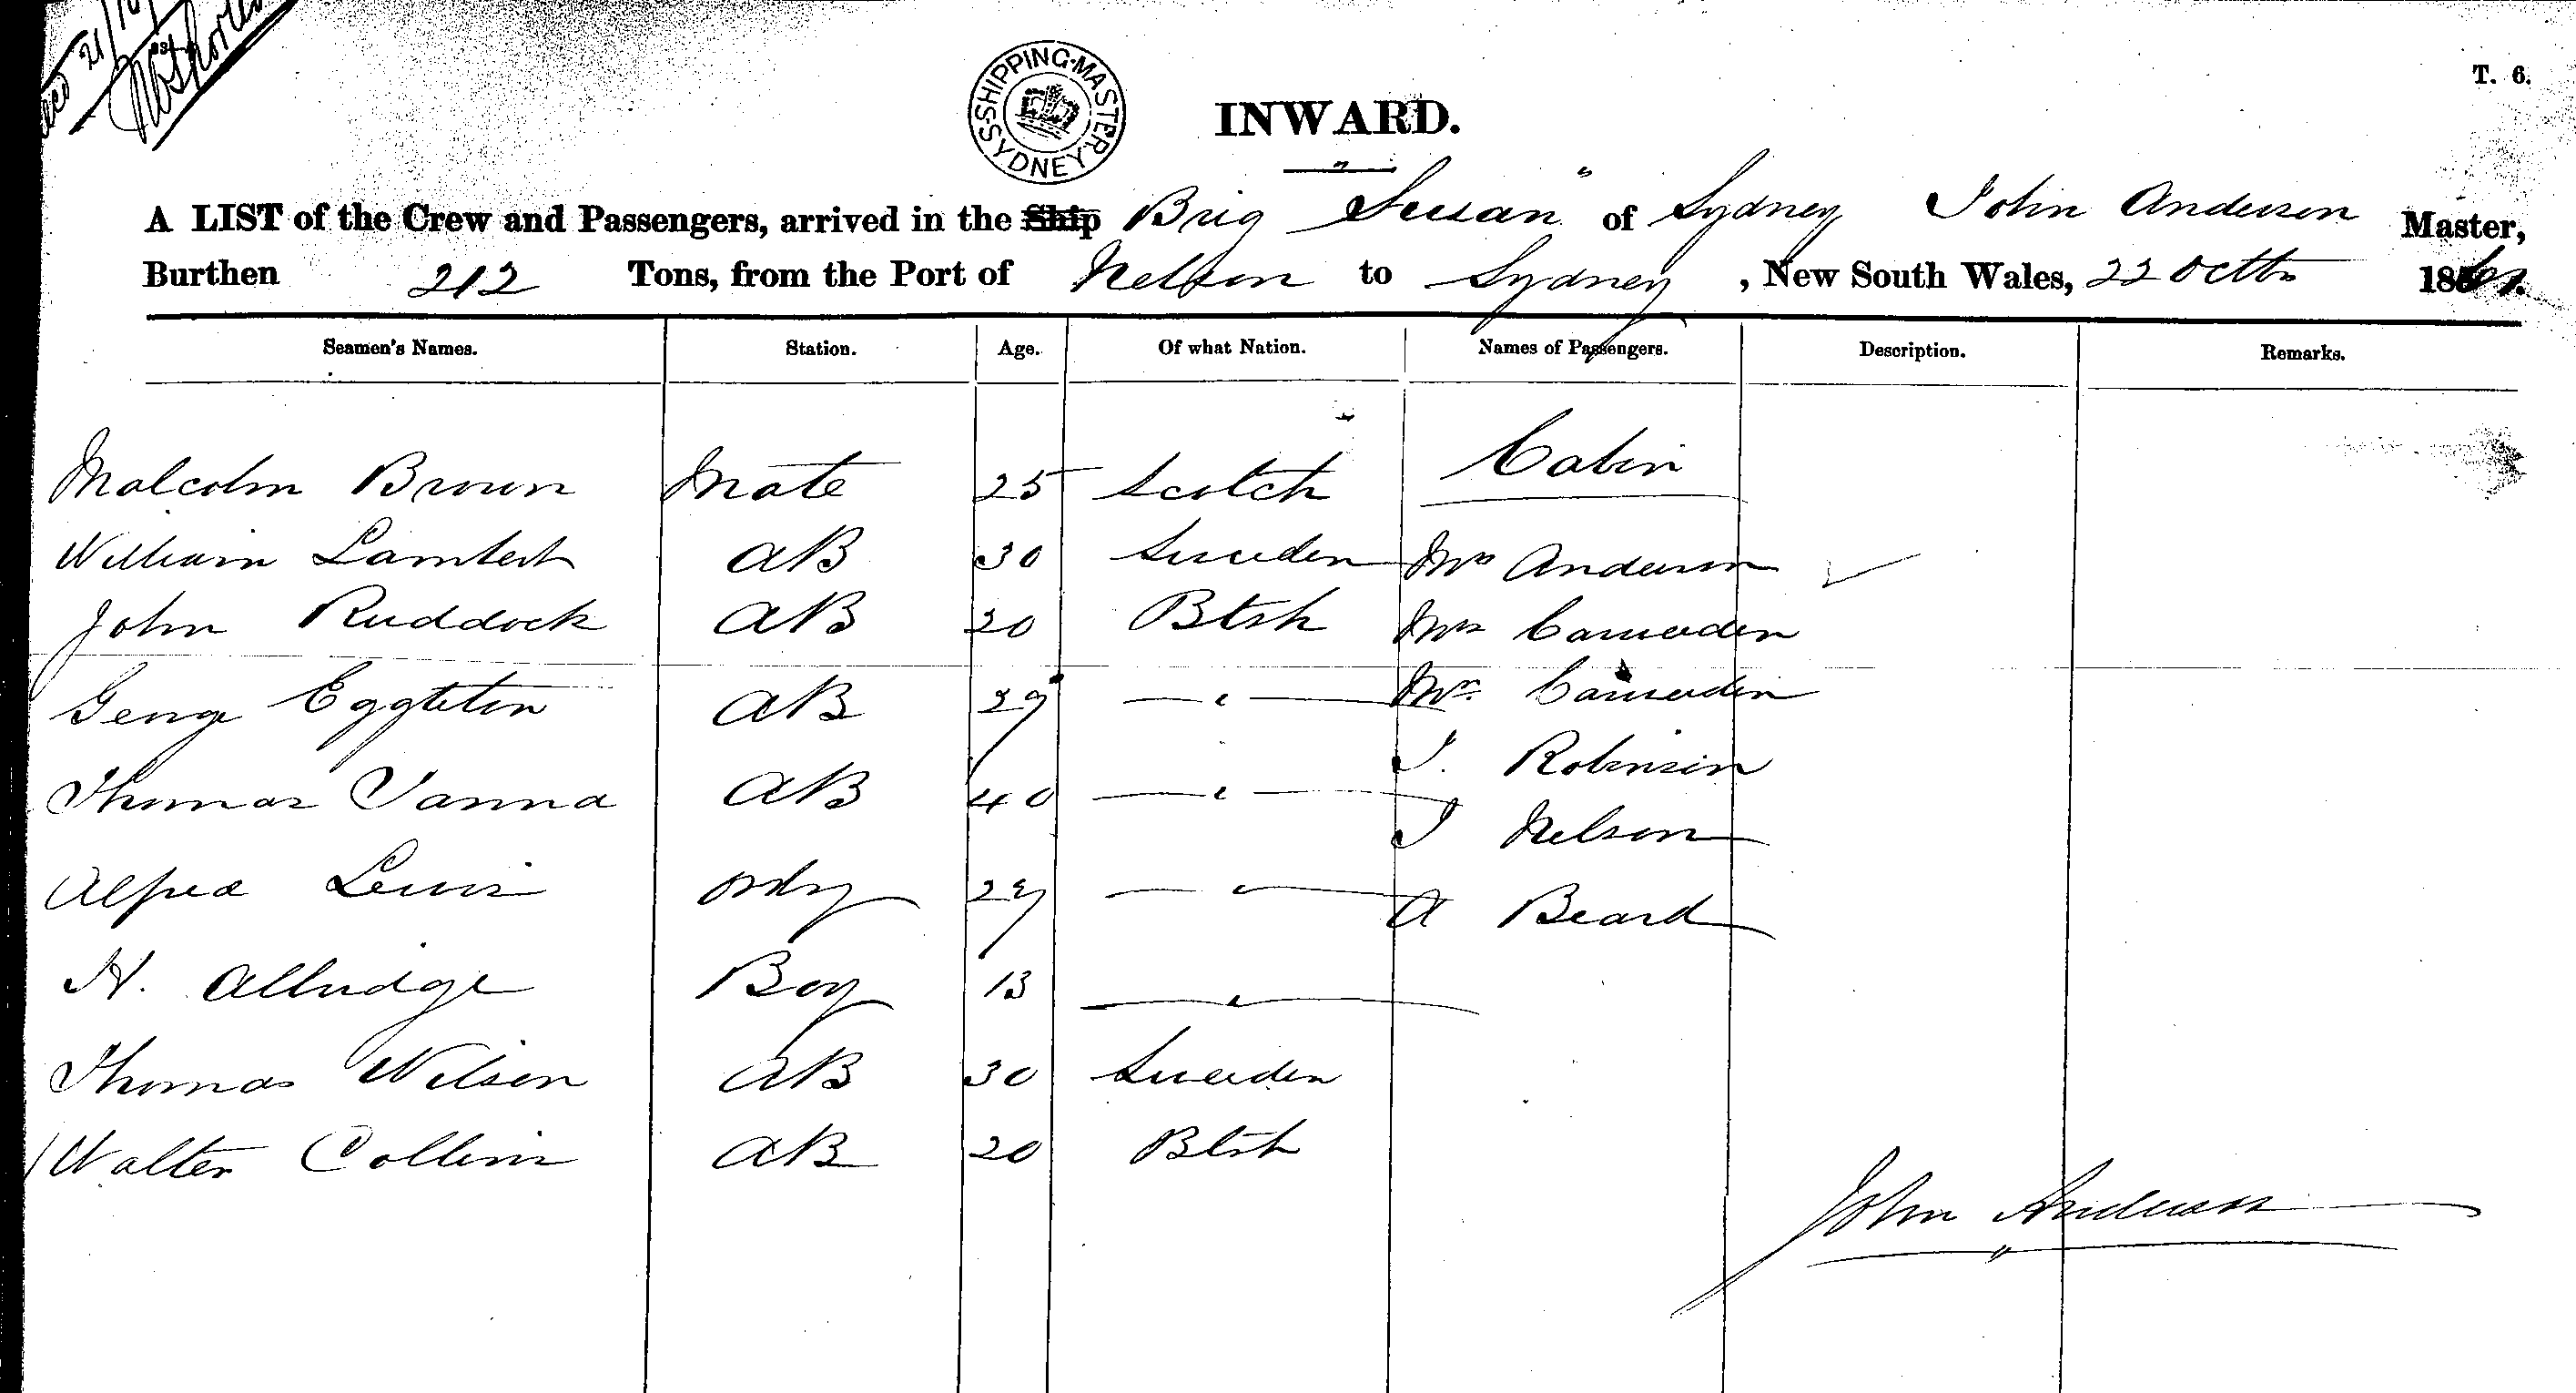 SHIPPING-MASTERS-SYDNEY
T. 6.
INWARD.
A LIST of the Crew and Passengers, arrived in the Ship Brig "Susan" of Sydney John Anderson Master,
Burthen 212 Tons, from the Port of Nelson to Sydney, New South Wales, 22 Octbr 186
Seamen's Names. Station. Age. Of what Nation. Names of Passengers. Description. Remarks.
Cabin
Malcolm Brown Mate 25 Scotch
William Lambert AB 30 Sweden Mrs Anderson ✓
John Ruddock AB 20 Btsh Mrs
George Eggleton AB 29 — " — Mr.
Thomas AB 40 — " — J. Robinson
J Nelson
Alfred Lewis Ordy 29 — " — A Beard
H. Alludge Boy 13 — " —
Thomas Wilson AB 30 Sweden
Walter Collins AB 20 Btsh
John Anderson